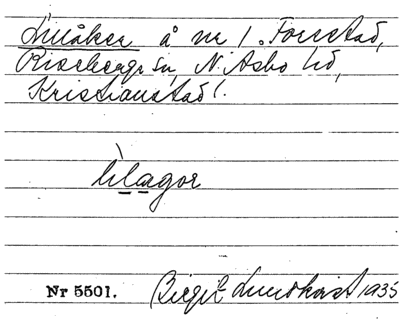 Småker å nr 1. Forestad,
Riseberga sn, N. Åsbo hd,
Kristianstad l.
Nr 5501. Birgit Lundkvist 1935